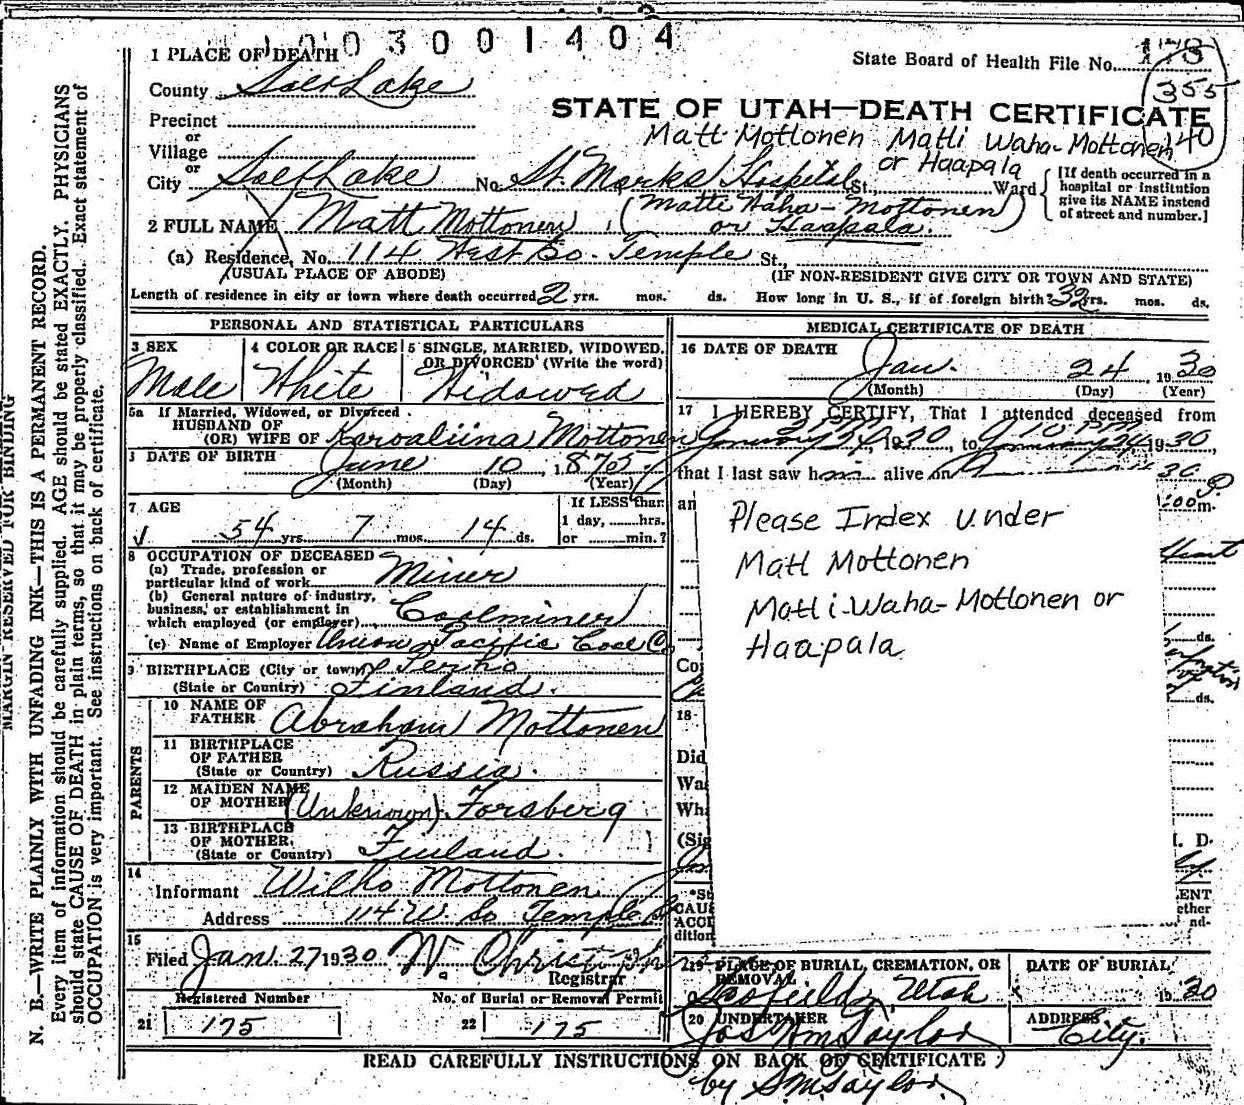 1003001404
1 PLACE OF DEATH
State Board of Health File No.
County Salt Lake
355
STATE OF UTAH—DEATH CERTIFICATE
Precinct
Matt Mottonen Matti Waha-Mottonen 40
or
or Haapala
Village
or
City Salt Lake No. St. Marks Hospital St., Ward
[If death occurred in a hospital or institution give its NAME instead of street and number.]
2 FULL NAME Matt Mottonen (Matti Waha-Mottonen
or Haapala.)
(a) Residence, No. 114 West So. Temple St.,
(USUAL PLACE OF ABODE) (IF NON-RESIDENT GIVE CITY OR TOWN AND STATE)
Length of residence in city or town where death occurred 2 yrs. mos. ds. How long in U. S., if of foreign birth? 32 yrs. mos. ds.
PERSONAL AND STATISTICAL PARTICULARS
3 SEX 4 COLOR OR RACE 5 SINGLE, MARRIED, WIDOWED, OR DIVORCED (Write the word)
Male White Widowed
5a If Married, Widowed, or Divorced
HUSBAND OF
(OR) WIFE OF Karoaliina Mottonen
DATE OF BIRTH June 10, 1875
(Month) (Day) (Year)
7 AGE If LESS than
54 yrs. 7 mos. 14 ds. 1 day, hrs.
or min.?
8 OCCUPATION OF DECEASED
(a) Trade, profession or
particular kind of work Miner
(b) General nature of industry,
business, or establishment in
which employed (or employer) Coalminer
(c) Name of Employer Union Pacific Coal Co
9 BIRTHPLACE (City or town) Terho
(State or Country) Finland.
PARENTS
10 NAME OF
FATHER Abraham Mottonen
11 BIRTHPLACE
OF FATHER
(State or Country) Russia.
12 MAIDEN NAME
OF MOTHER (Unknown) Forsberg
13 BIRTHPLACE
OF MOTHER.
(State or Country) Finland.
14
Informant Wilho Mottonen
Address 114 W. So Temple St
15
Filed Jan 27 1930 W. Christ
Registrar
Registered Number No. of Burial or Removal Permit
21 175 22 175
MEDICAL CERTIFICATE OF DEATH
16 DATE OF DEATH
Jan. 24, 1930
(Month) (Day) (Year)
17 I HEREBY CERTIFY, That I attended deceased from
January 24, 1930, to January 24, 1930,
that I last saw him alive on 30
an :00 P m.
Please Index under
Matt Mottonen
Matti-Waha-Mottonen or
Haapala
Heart
ds.
Co
ds.
18
Did
Was
Wha
(Sig M. D.
*St ENT
CAUS ether
ACCI nd-
dition
19 PLACE OF BURIAL, CREMATION, OR
REMOVAL
Scofield, Utah
DATE OF BURIAL
1930
20 UNDERTAKER
Jos Wm Taylor
by S.M. Taylor.
ADDRESS
City.
READ CAREFULLY INSTRUCTIONS ON BACK OF CERTIFICATE
MARGIN RESERVED FOR BINDING
N. B.—WRITE PLAINLY WITH UNFADING INK—THIS IS A PERMANENT RECORD.
Every item of information should be carefully supplied. AGE should be stated EXACTLY. PHYSICIANS
should state CAUSE OF DEATH in plain terms, so that it may be properly classified. Exact statement of
OCCUPATION is very important. See instructions on back of certificate.